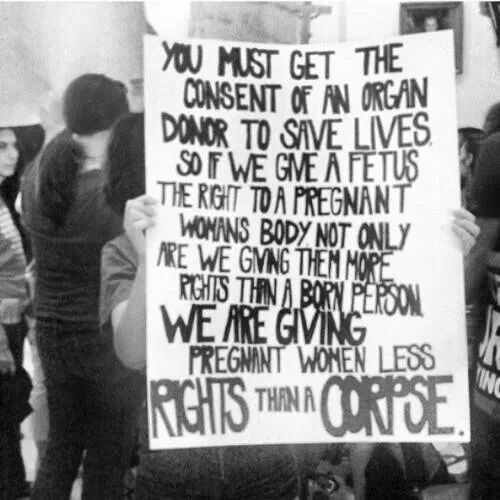 YOU MUST GET THE
CONSENT OF AN ORGAN
DONOR TO SAVE LIVES.
SO IF WE GIVE A FETUS
THE RIGHT TO A PREGNANT
WOMANS BODY, NOT ONLY
ARE WE GIVING THEM MORE
RIGHTS THAN A BORN PERSON
WE ARE GIVING
PREGNANT WOMEN LESS
RIGHTS THAN A CORPSE.